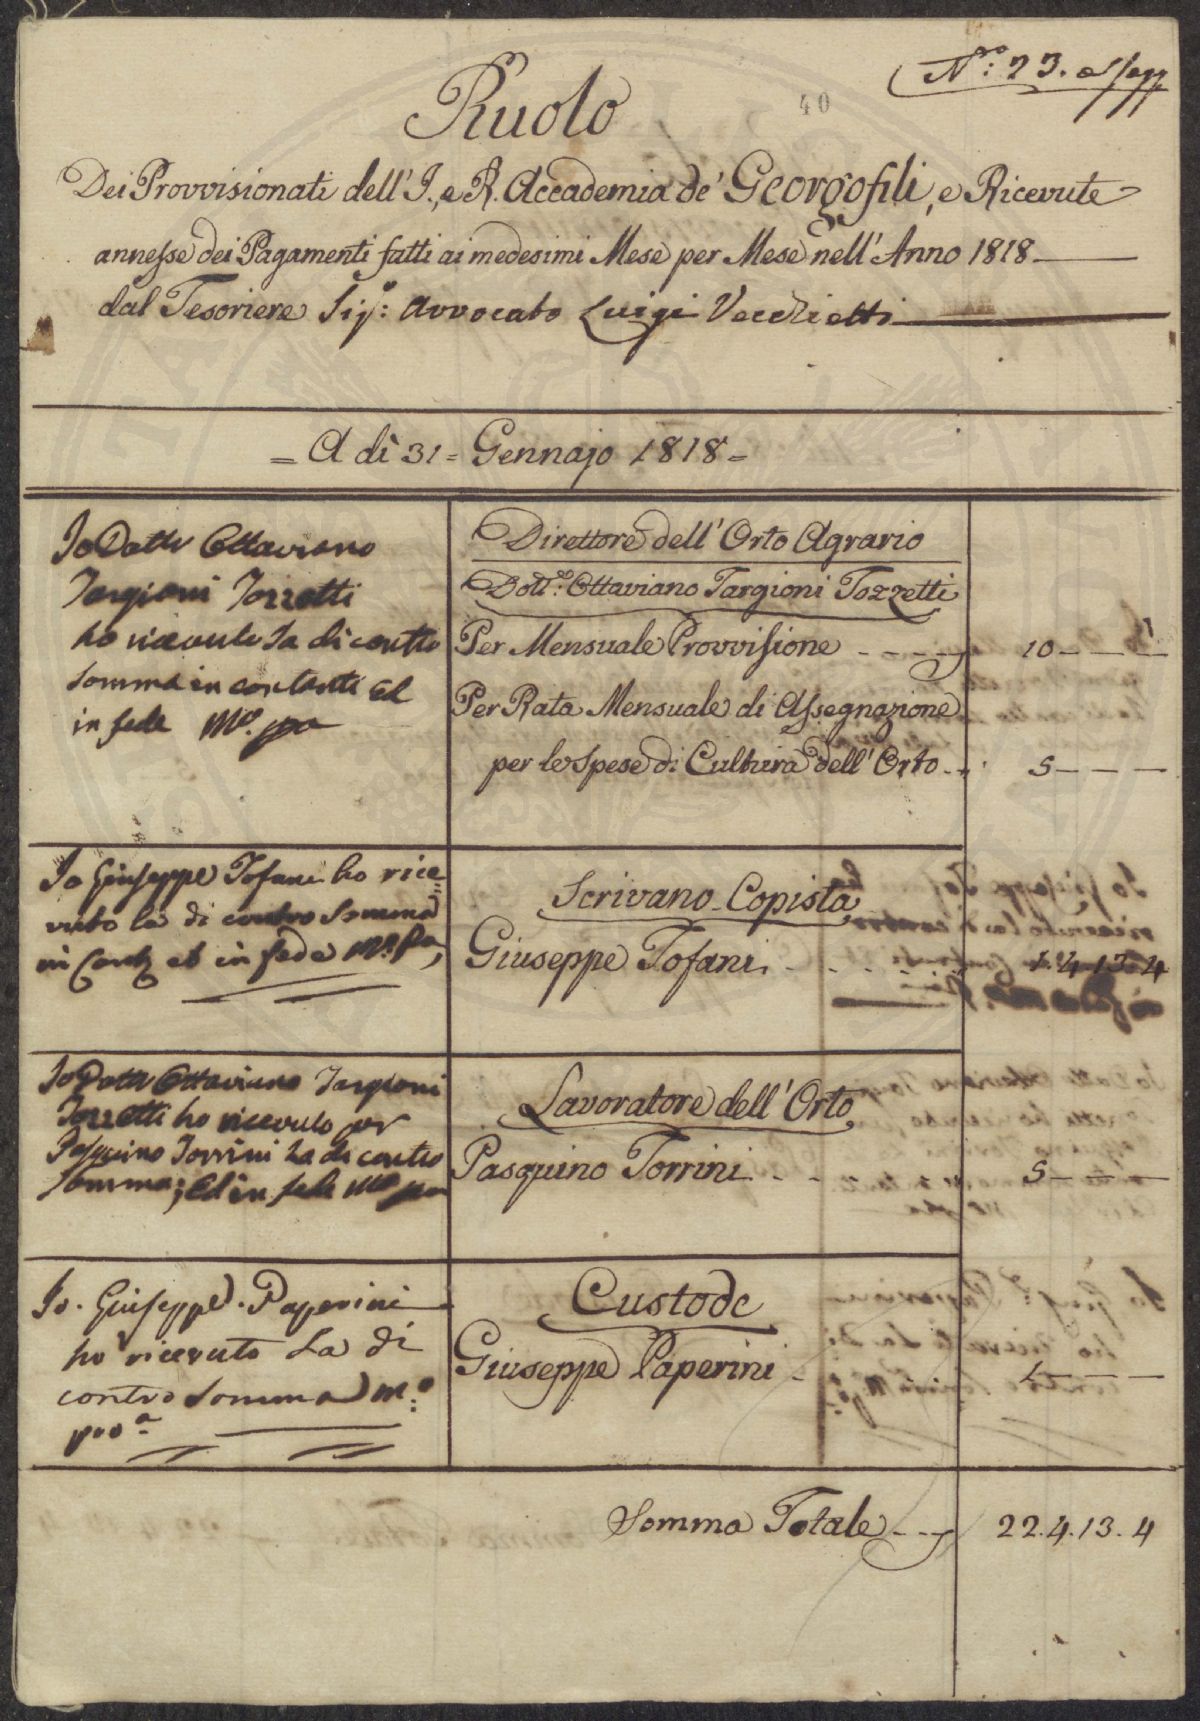 N.º: 23. e segg
40
Ruolo
Dei Provvisionati dell' I., e R. Accademia de' Georgofili, e Ricevute
annesse dei Pagamenti fatti ai medesimi Mese per Mese nell' Anno 1818
dal Tesoriere Sig.: Avvocato Luigi Vecchietti
= A dì 31 = Gennajo 1818 =
Io Dottr Ottaviano
Targioni Tozzetti
ho ricevuto la di contro
somma in contanti ed
in fede Mº. pa
Direttore dell' Orto Agrario
Dott.: Ottaviano Targioni Tozzetti
Per Mensuale Provvisione - - - - 10 - - -
Per Rata Mensuale di Assegnazione
per le spese di Cultura dell' Orto - - 5 - - -
Io Giuseppe Tofani ho rice=
vuto la di contro Somma
in Conti et in fede Mº. Pa,
Scrivano Copista
Giuseppe Tofani - - - - - - 1. 4. 13. 4
Io Dottr Ottaviano Targioni
Tozzetti ho ricevuto per
Pasquino Torrini la di contro
somma; ed in fede Mº pa
Lavoratore dell' Orto
Pasquino Torrini - - 5 - - -
Io. Giuseppe. Paperini
ho ricevuto La di
contro Somma Mº:
proª
Custode
Giuseppe Paperini - 1 - - -
Somma Totale - - - 22. 4. 13. 4